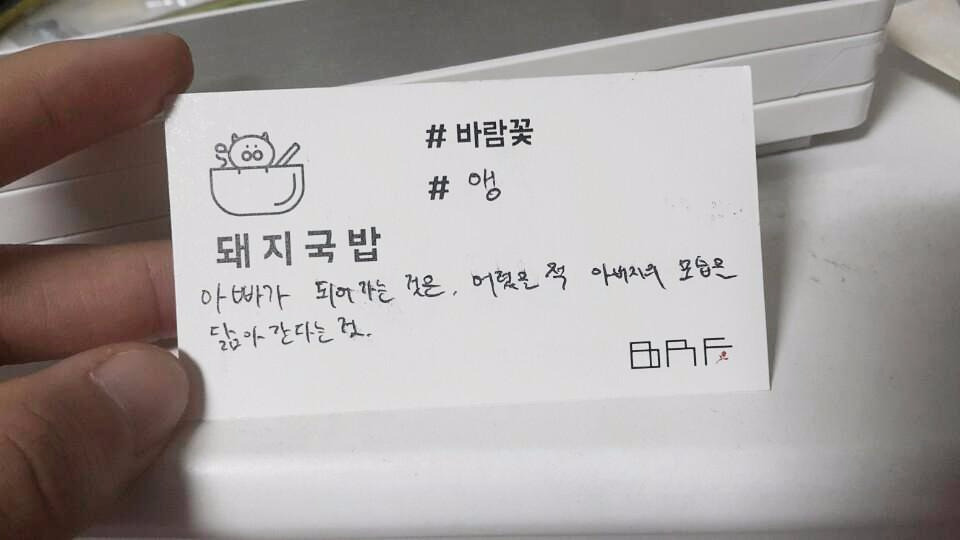 # 바람꽃
# 앵
돼지국밥
아빠가 되어가는 것은, 어렸을 적 아버지의 모습은
닮아 간다는 것.
BAF